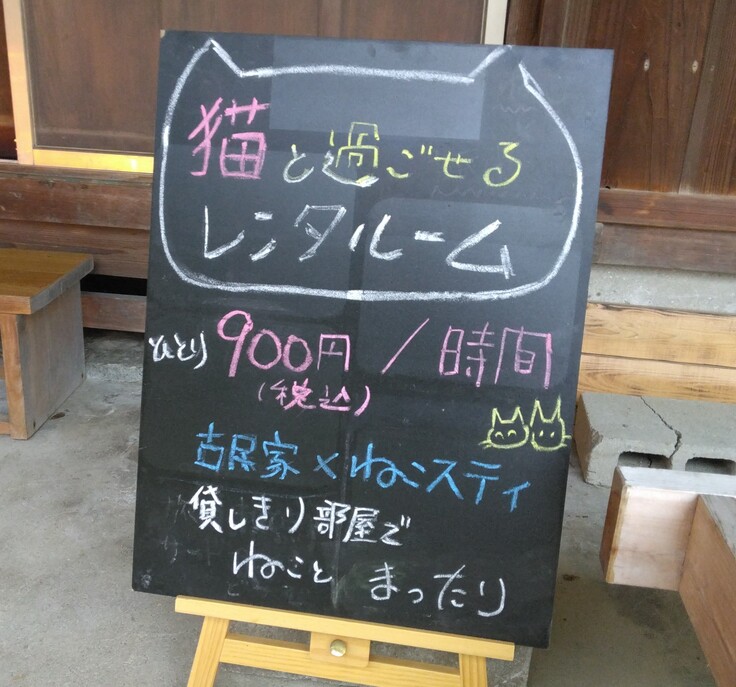 猫と過ごせる
レンタルーム
ひとり 900円/時間
(税込)
古民家×ねこスティ
貸しきり部屋で
ねこと まったり